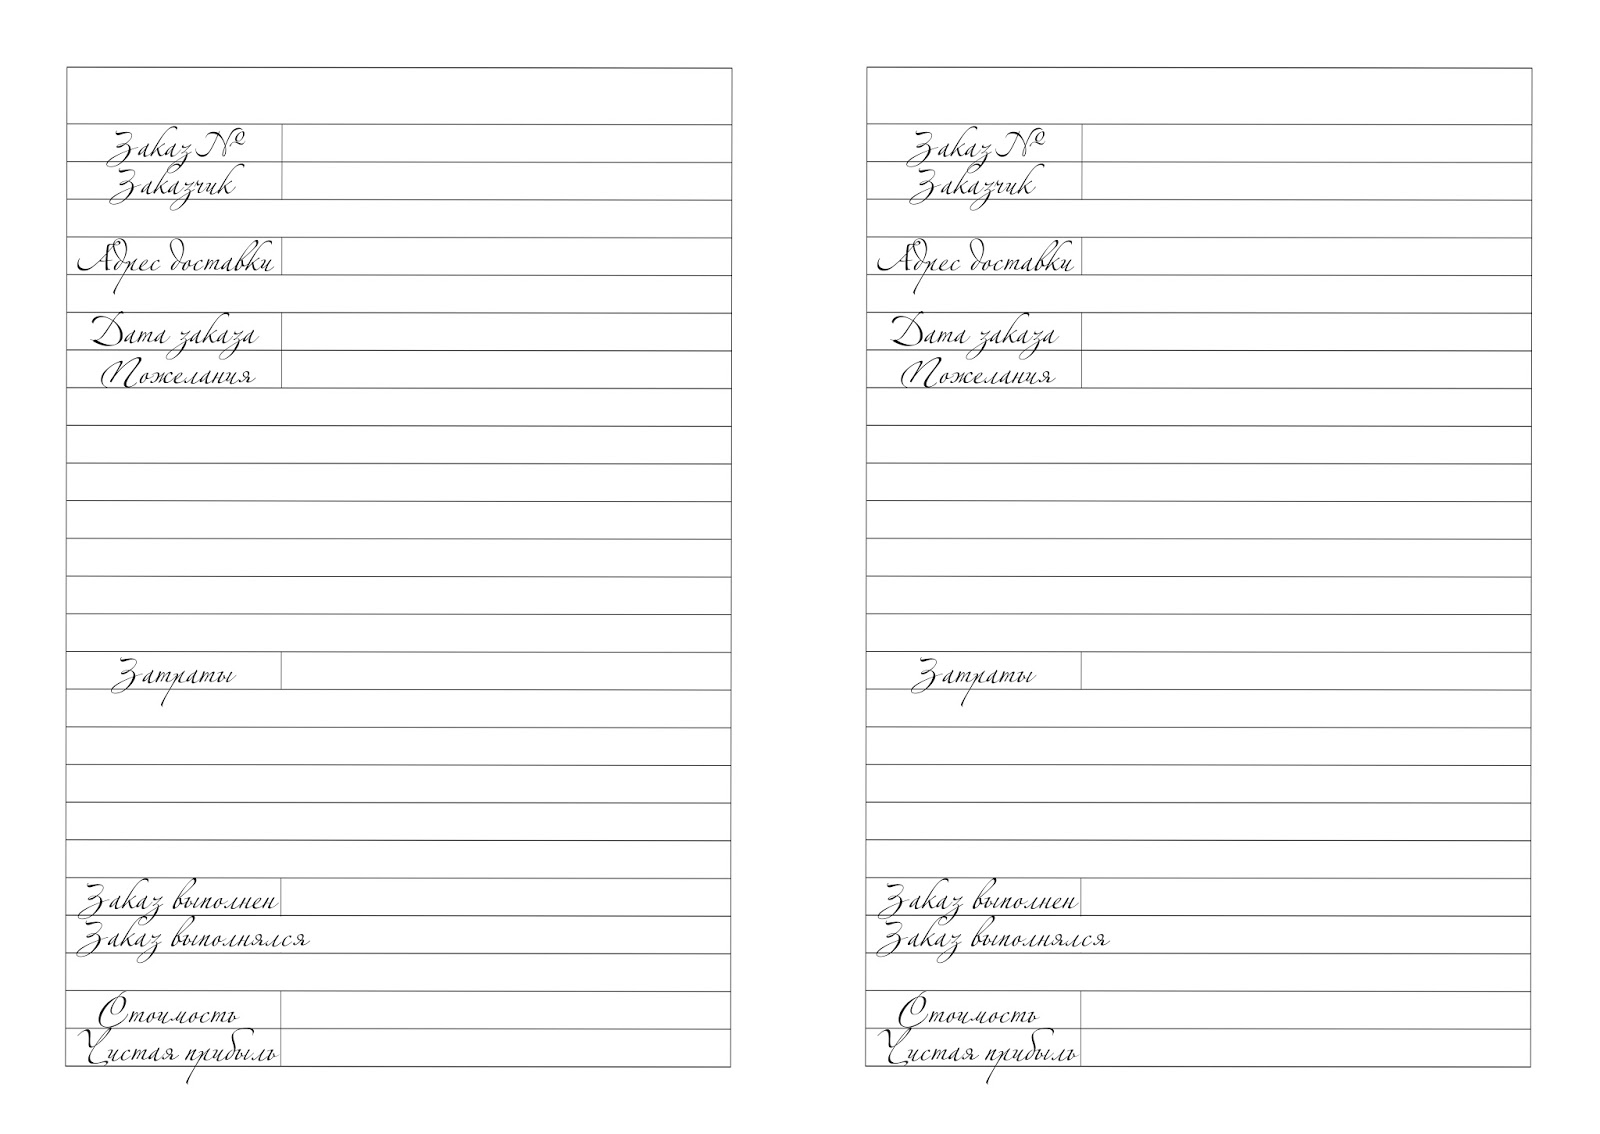 Заказ №
Заказчик
Адрес доставки
Дата заказа
Пожелания
Затраты
Заказ выполнен
Заказ выполнялся
Стоимость
Чистая прибыль
Заказ №
Заказчик
Адрес доставки
Дата заказа
Пожелания
Затраты
Заказ выполнен
Заказ выполнялся
Стоимость
Чистая прибыль